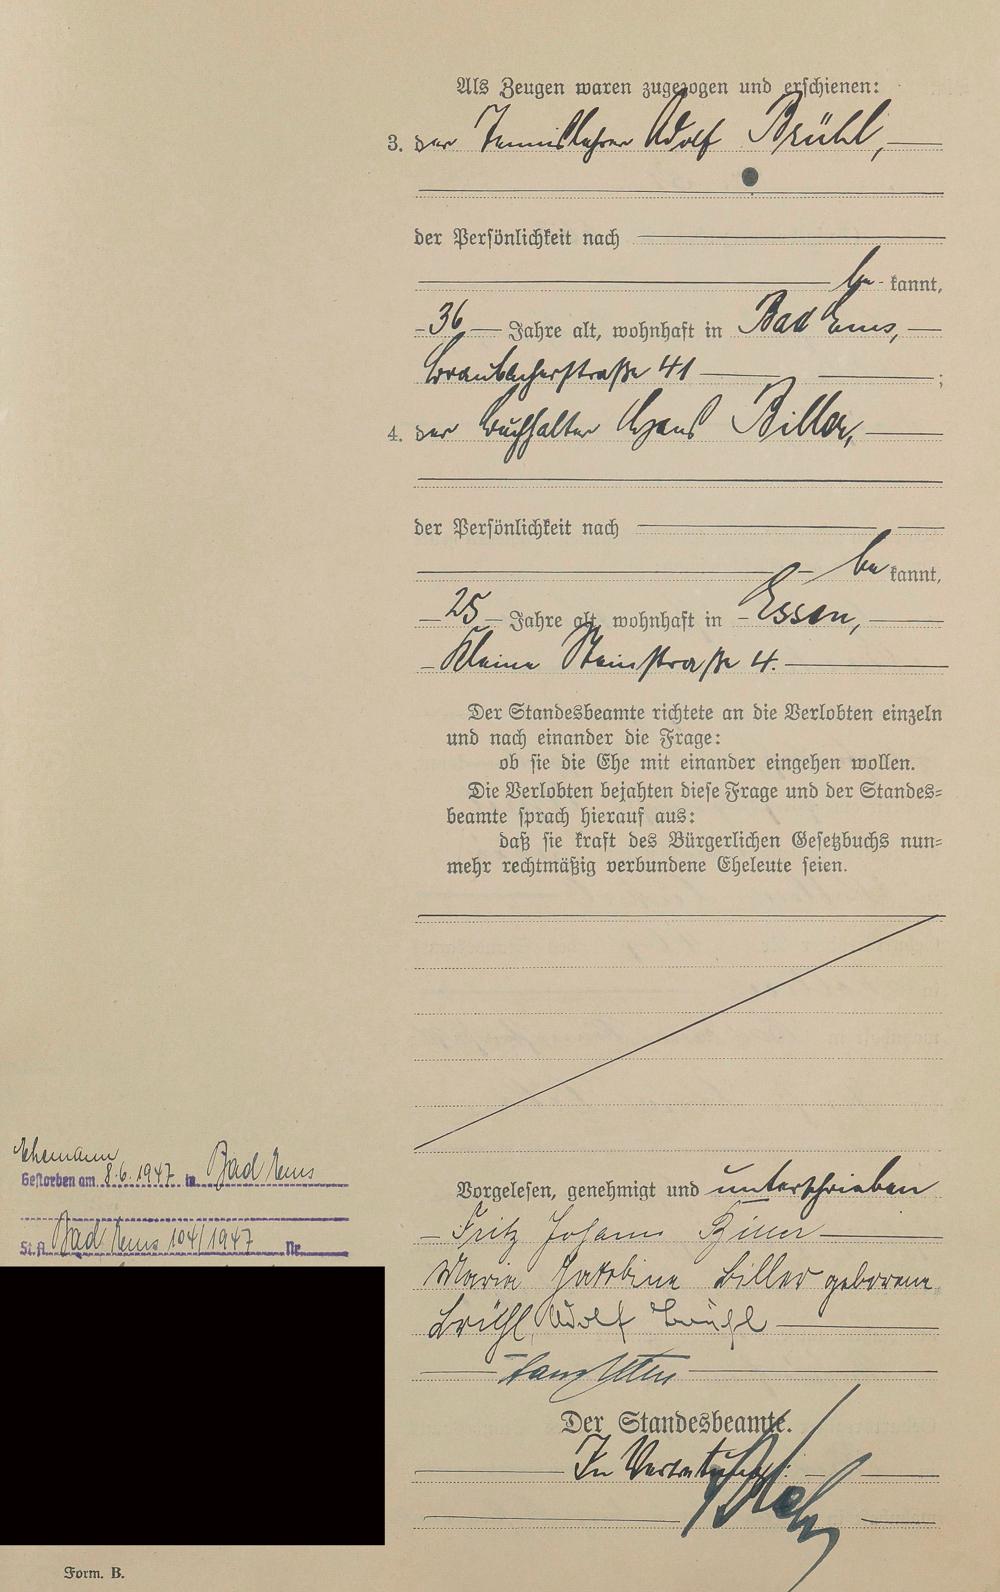 Als Zeugen waren zugezogen und erschienen:
3. der Tennislehrer Adolf Brühl,
der Persönlichkeit nach
be kannt,
36 Jahre alt, wohnhaft in Bad Ems,
Braubacherstraße 41 ;
4. der Buchhalter Hans Biller,
der Persönlichkeit nach
be kannt,
25 Jahre alt, wohnhaft in Essen,
Kleine Steinstraße 4.
Der Standesbeamte richtete an die Verlobten einzeln
und nach einander die Frage:
ob sie die Ehe mit einander eingehen wollen.
Die Verlobten bejahten diese Frage und der Standes=
beamte sprach hierauf aus:
daß sie kraft des Bürgerlichen Gesetzbuchs nun=
mehr rechtmäßig verbundene Eheleute seien.
Ehemann
Gestorben am 8.6.1947 in Bad Ems
St.A. Bad Ems 104/1947 Nr.
Vorgelesen, genehmigt und unterschrieben
Fritz Johann Biller
Maria Jakobine Biller geborene
Brühl, Adolf Brühl
Hans
Der Standesbeamte.
In Vertretung:
Form. B.